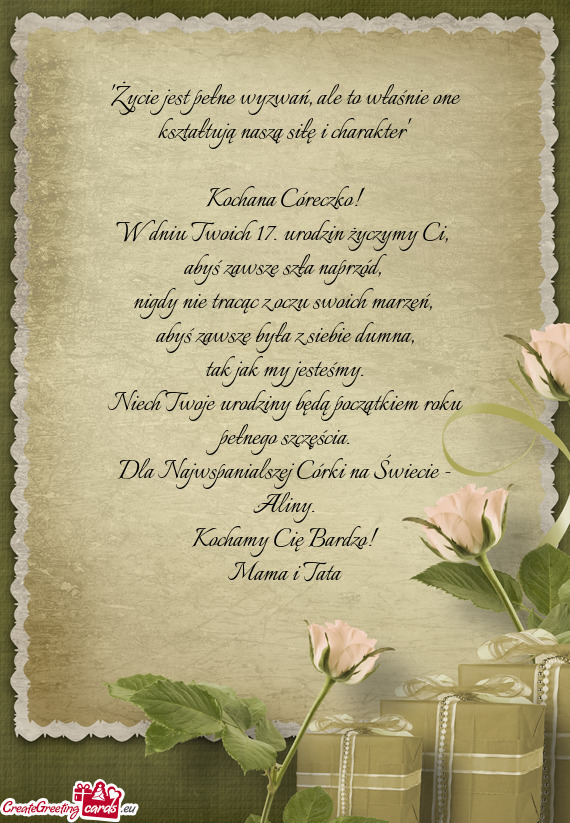 "Życie jest pełne wyzwań, ale to właśnie one
kształtują naszą siłę i charakter"
Kochana Córeczko!
W dniu Twoich 17. urodzin życzymy Ci,
abyś zawsze szła naprzód,
nigdy nie tracąc z oczu swoich marzeń,
abyś zawsze była z siebie dumna,
tak jak my jesteśmy.
Niech Twoje urodziny będą początkiem roku
pełnego szczęścia.
Dla Najwspanialszej Córki na Świecie -
Aliny.
Kochamy Cię Bardzo!
Mama i Tata
CreateGreeting cards .eu